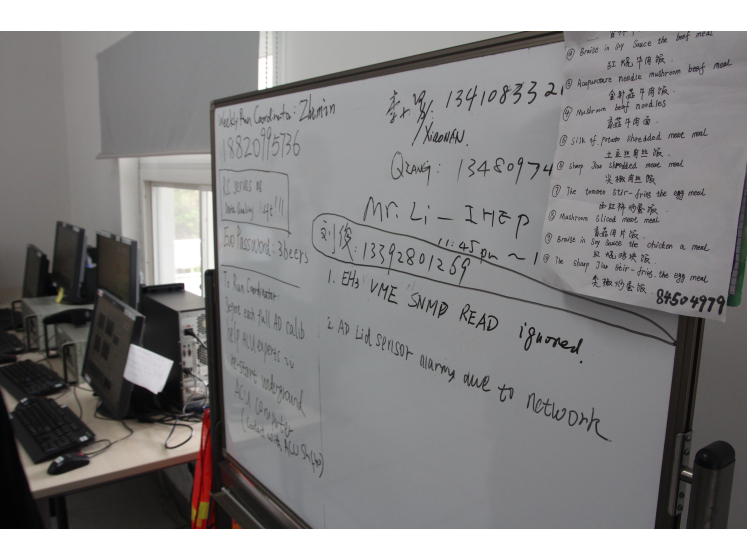 Weekly Run Coordinator: Zhimin
18820995736
Evo Password: 3beers
To Run Coordinator
Before each full AD calib
help ACU experts to
re-start underground
ACU computer
13410833 21
XIAONAN.
QIZANG: 13480974
Mr. Li — IHEP
11:45pm ~ 1
刘俊: 13392801269
1. EH3 VME SNMP READ ignored.
2. AD Lid sensor alarms due to network
② Braise in Soy Sauce the beef meal
红烧牛肉饭
③ Acupuncture needle mushroom beef meal
金针菇牛肉饭
④ Mushroom beef noodles
香菇牛肉面
⑤ Silk of potato shredded meat meal
土豆丝肉丝饭
⑥ sharp Jiao shredded meat meal
尖椒肉丝饭
⑦ The tomato stir-fries the egg meal
西红柿炒蛋饭
⑧ Mushroom sliced meat meal
香菇肉片饭
⑨ Braise in Soy Sauce the chicken a meal
红烧鸡块饭
The sharp Jiao Stir-fries the egg meal
尖椒炒蛋饭
84504979